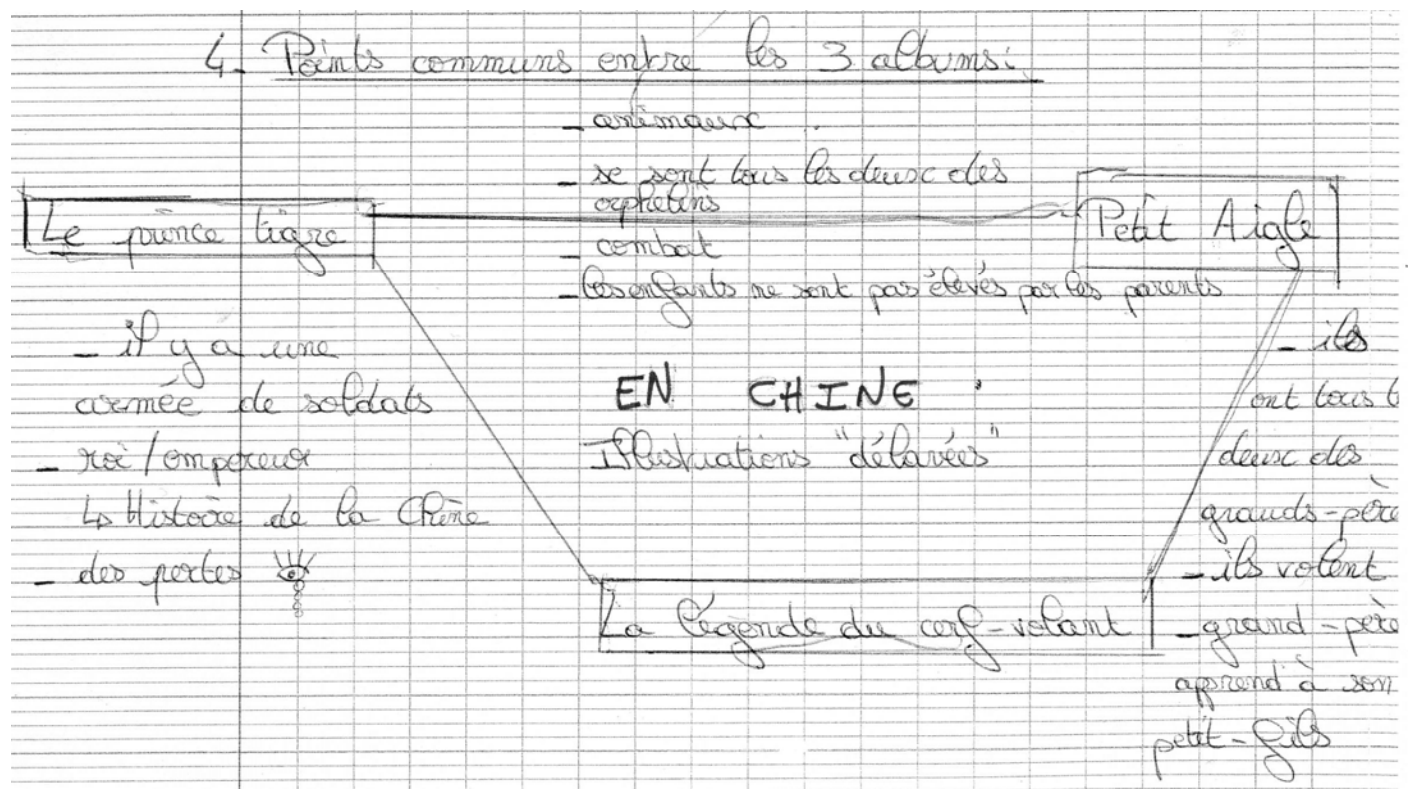 4_ Points communs entre les 3 albums:
_ animaux.
_ se sont tous les deux des
orphelins
_ combat
_ les enfants ne sont pas élevés par les parents
Le prince tigre
Petit Aigle
_ il y a une
armée de soldats
_ roi / empereur
↳ Histoire de la Chine
_ des pertes
EN CHINE
Illustrations "délavées"
_ ils
ont tous l
deux des
grands-père
_ ils volent
_ grand-père
apprend à son
petit-fils
La légende du cerf-volant